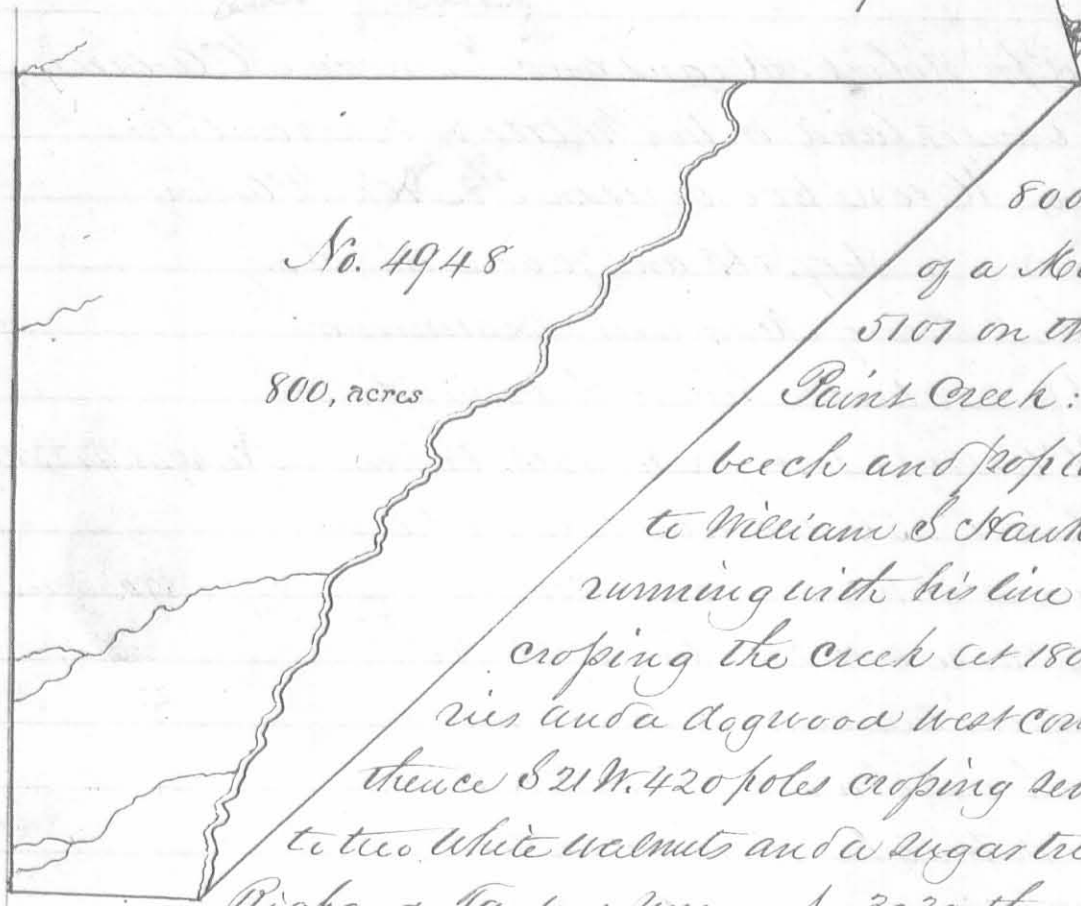 No. 4948
800, acres
800
of a
5101 on th
Paint Creek:
beech and popla
to William S Hawk
running with his line
croping the creek at 180
ries and a dogwood west cor
thence S 21 W. 420 poles croping sev
to two white walnuts and a sugar tre